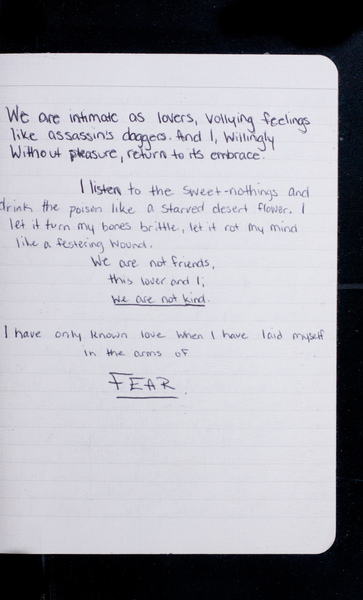 We are intimate as lovers, vollying feelings
like assassin's daggers. And I, Willingly
Without pleasure, return to its embrace.
I listen to the sweet-nothings and
drink the poison like a starved desert flower. I
let it turn my bones brittle, let it rot my mind
like a festering wound.
We are not friends,
this lover and I;
we are not kind.
I have only known love when I have laid myself
in the arms of
FEAR.